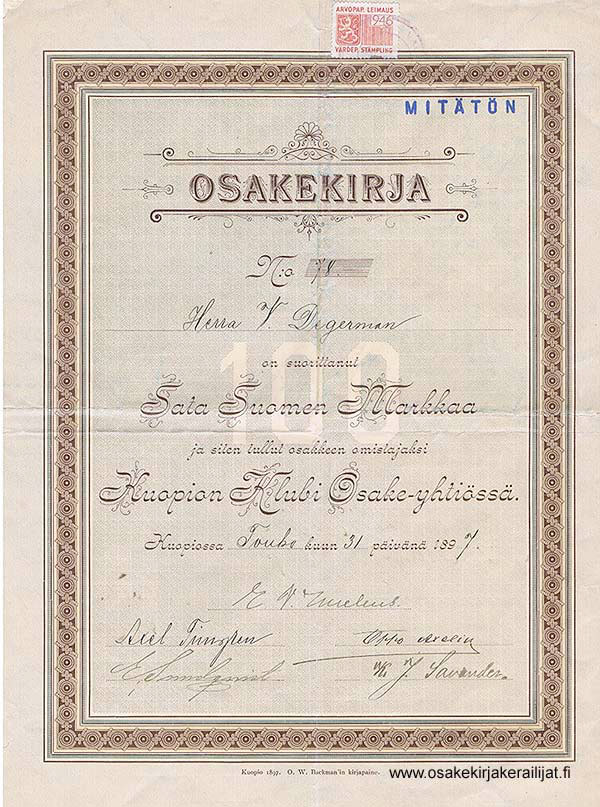 ARVOPAP. LEIMAUS
1946
VÄRDEP. STÄMPLING
MITÄTÖN
OSAKEKIRJA
N:o 78.
Herra V. Degerman
100
on suorittanut
Sata Suomen Markkaa
ja siten tullut osakkeen omistajaksi
Kuopion Klubi Osake-yhtiössä.
Kuopiossa Touko kuun 31 päivänä 1897.
E. V.
Axel
Otto
E. Sundqvist J. Savander.
Kuopio 1897. O. W. Backman'in kirjapaino.
www.osakekirjakerailijat.fi